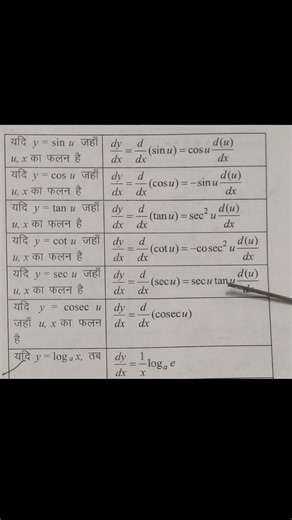 यदि y = sin u जहाँ
u, x का फलन है
dy/dx = d/dx (sin u) = cos u d(u)/dx
यदि y = cos u जहाँ
u, x का फलन है
dy/dx = d/dx (cos u) = −sin u d(u)/dx
यदि y = tan u जहाँ
u, x का फलन है
dy/dx = d/dx (tan u) = sec² u d(u)/dx
यदि y = cot u जहाँ
u, x का फलन है
dy/dx = d/dx (cot u) = −cosec² u d(u)/dx
यदि y = sec u जहाँ
u, x का फलन है
dy/dx = d/dx (sec u) = sec u tan u d(u)/dx
यदि y = cosec u
जहाँ u, x का फलन
है
dy/dx = d/dx (cosec u)
यदि y = logₐ x, तब
dy/dx = 1/x logₐ e